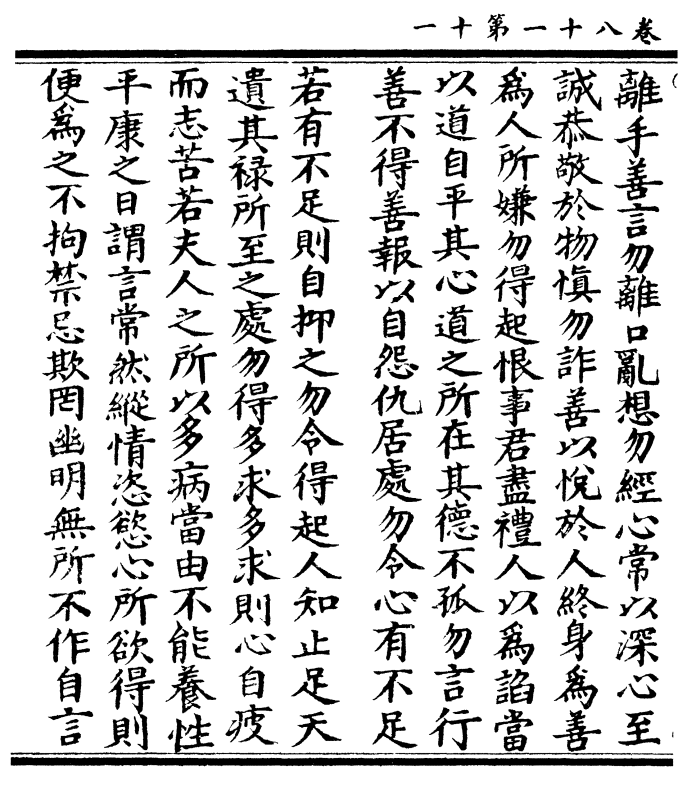 卷八十一第十一
離手善言勿離口亂想勿經心常以深心至
誠恭敬於物慎勿詐善以悅於人終身為善
為人所嫌勿得起恨事君盡禮人以為諂當
以道自平其心道之所在其德不孤勿言行
善不得善報以自怨仇居處勿令心有不足
若有不足則自抑之勿令得起人知止足天
遺其祿所至之處勿得多求多求則心自疲
而志苦若夫人之所以多病當由不能養性
平康之日謂言常然縱情恣慾心所欲得則
便為之不拘禁忌欺罔幽明無所不作自言